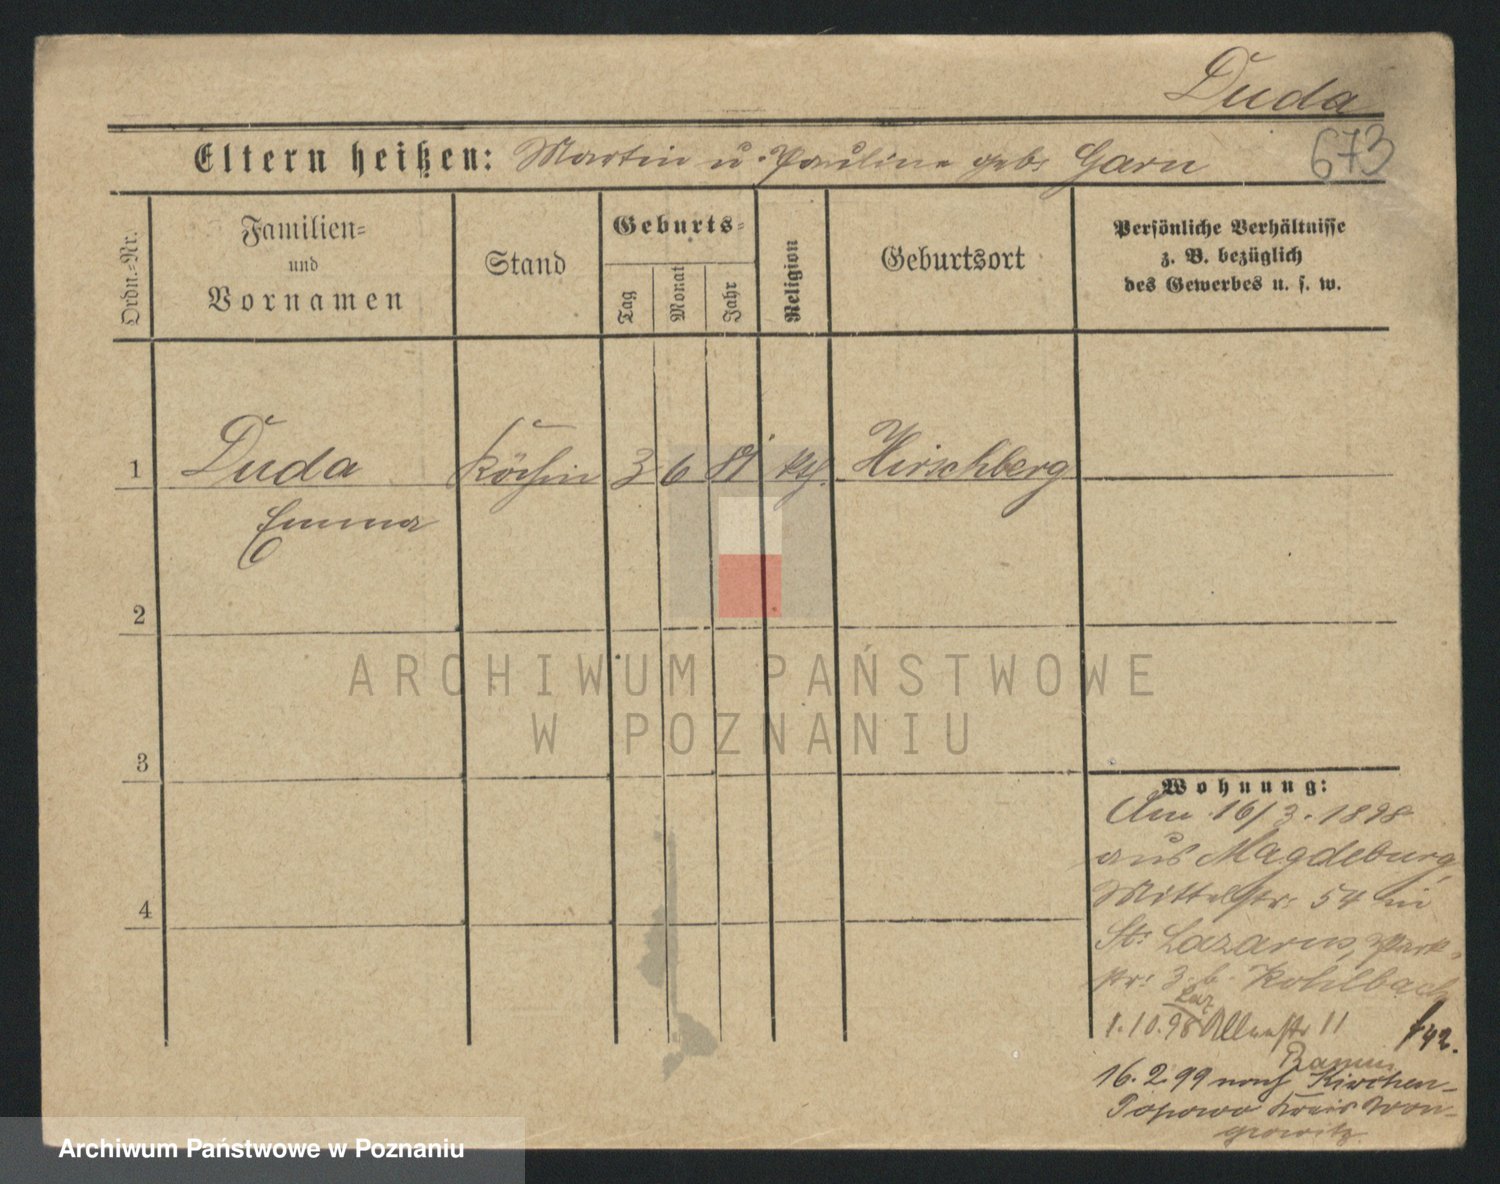 Duda
Eltern heißen: Martin u. Pauline geb. Garn
673
Ordn.-Nr.
Familien-
und
Vornamen
Stand
Geburts-
Tag
Monat
Jahr
Religion
Geburtsort
Persönliche Verhältnisse
z. B. bezüglich
des Gewerbes u. s. w.
1 Duda Köchin 3 6 81 kth. Hirschberg
Emma
2
3
4
Wohnung:
Am 16/3. 1898
aus Magdeburg,
Mittelstr. 54 in
St. Lazarus, Park-
str. 3 b. Kohlbach
Laz
1.10.98 11
16.2.99 nach Kirchen-
Popowo Kreis Won-
growitz
ARCHIWUM PAŃSTWOWE
W POZNANIU
Archiwum Państwowe w Poznaniu